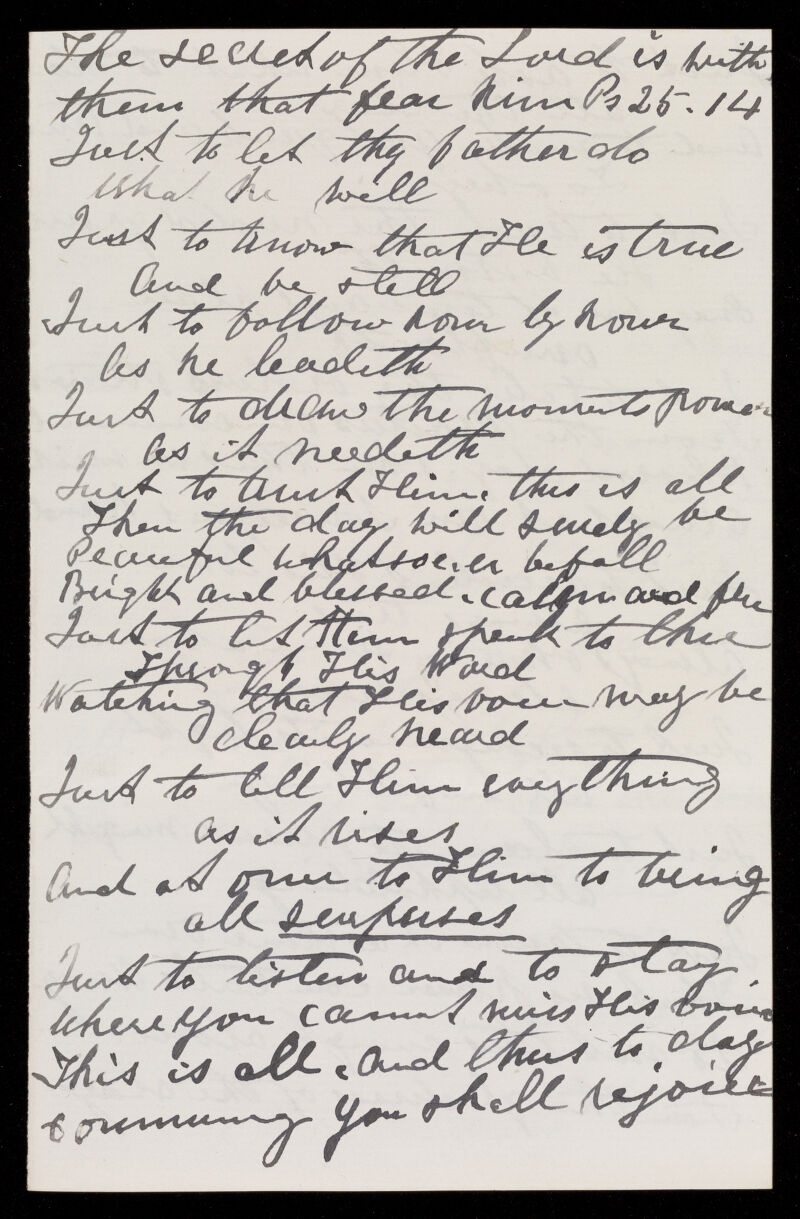 The secret of the Lord is with
them that fear him Ps 25. 14
Just to let thy father do
what he will
Just to know that He is true
And be still
Just to follow hour by hour
As he leadeth
Just to draw the moments power
as it needeth
Just to trust Him. this is all
Then the day will surely be
Peaceful whatsoever befall
Bright and blessed. calm and free
Just to let Him speak to thee
Through His Word
Watching that His voice may be
clearly heard
Just to tell Him everything
as it rises
And at once to Him to bring
all surprises
Just to listen and to stay
where you cannot miss His voice
This is all. And thus to day
communing you shall rejoice